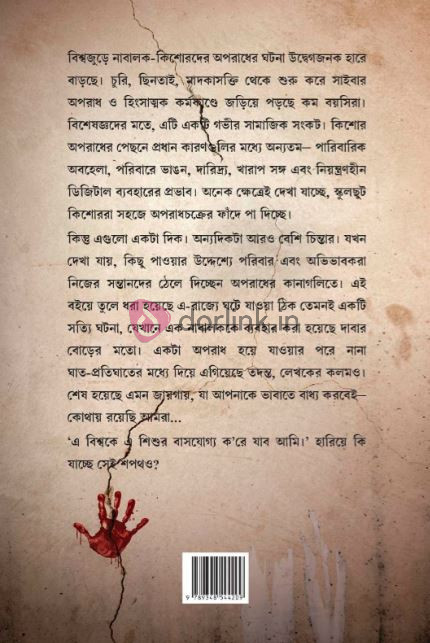 বিশ্বজুড়ে নাবালক-কিশোরদের অপরাধের ঘটনা উদ্বেগজনক হারে
বাড়ছে। চুরি, ছিনতাই, মাদকাসক্তি থেকে শুরু করে সাইবার
অপরাধ ও হিংসাত্মক কর্মকাণ্ডে জড়িয়ে পড়ছে কম বয়সিরা।
বিশেষজ্ঞদের মতে, এটি একটি গভীর সামাজিক সংকট। কিশোর
অপরাধের পেছনে প্রধান কারণগুলির মধ্যে অন্যতম— পারিবারিক
অবহেলা, পরিবারে ভাঙন, দারিদ্র্য, খারাপ সঙ্গ এবং নিয়ন্ত্রণহীন
ডিজিটাল ব্যবহারের প্রভাব। অনেক ক্ষেত্রেই দেখা যাচ্ছে, স্কুলছুট
কিশোররা সহজে অপরাধচক্রের ফাঁদে পা দিচ্ছে।
কিন্তু এগুলো একটা দিক। অন্যদিকটা আরও বেশি চিন্তার। যখন
দেখা যায়, কিছু পাওয়ার উদ্দেশ্যে পরিবার এবং অভিভাবকরা
নিজের সন্তানদের ঠেলে দিচ্ছেন অপরাধের কানাগলিতে। এই
বইয়ে তুলে ধরা হয়েছে এ-রাজ্যে ঘটে যাওয়া ঠিক তেমনই একটি
সত্যি ঘটনা, যেখানে এক নাবালককে ব্যবহার করা হয়েছে দাবার
বোড়ের মতো। একটা অপরাধ হয়ে যাওয়ার পরে নানা
ঘাত-প্রতিঘাতের মধ্যে দিয়ে এগিয়েছে তদন্ত, লেখকের কলমও।
শেষ হয়েছে এমন জায়গায়, যা আপনাকে ভাবাতে বাধ্য করবেই—
কোথায় রয়েছি আমরা...
‘এ বিশ্বকে এ শিশুর বাসযোগ্য ক'রে যাব আমি।’ হারিয়ে কি
যাচ্ছে সেই শপথও?
dorlink.in
9 789348 544209